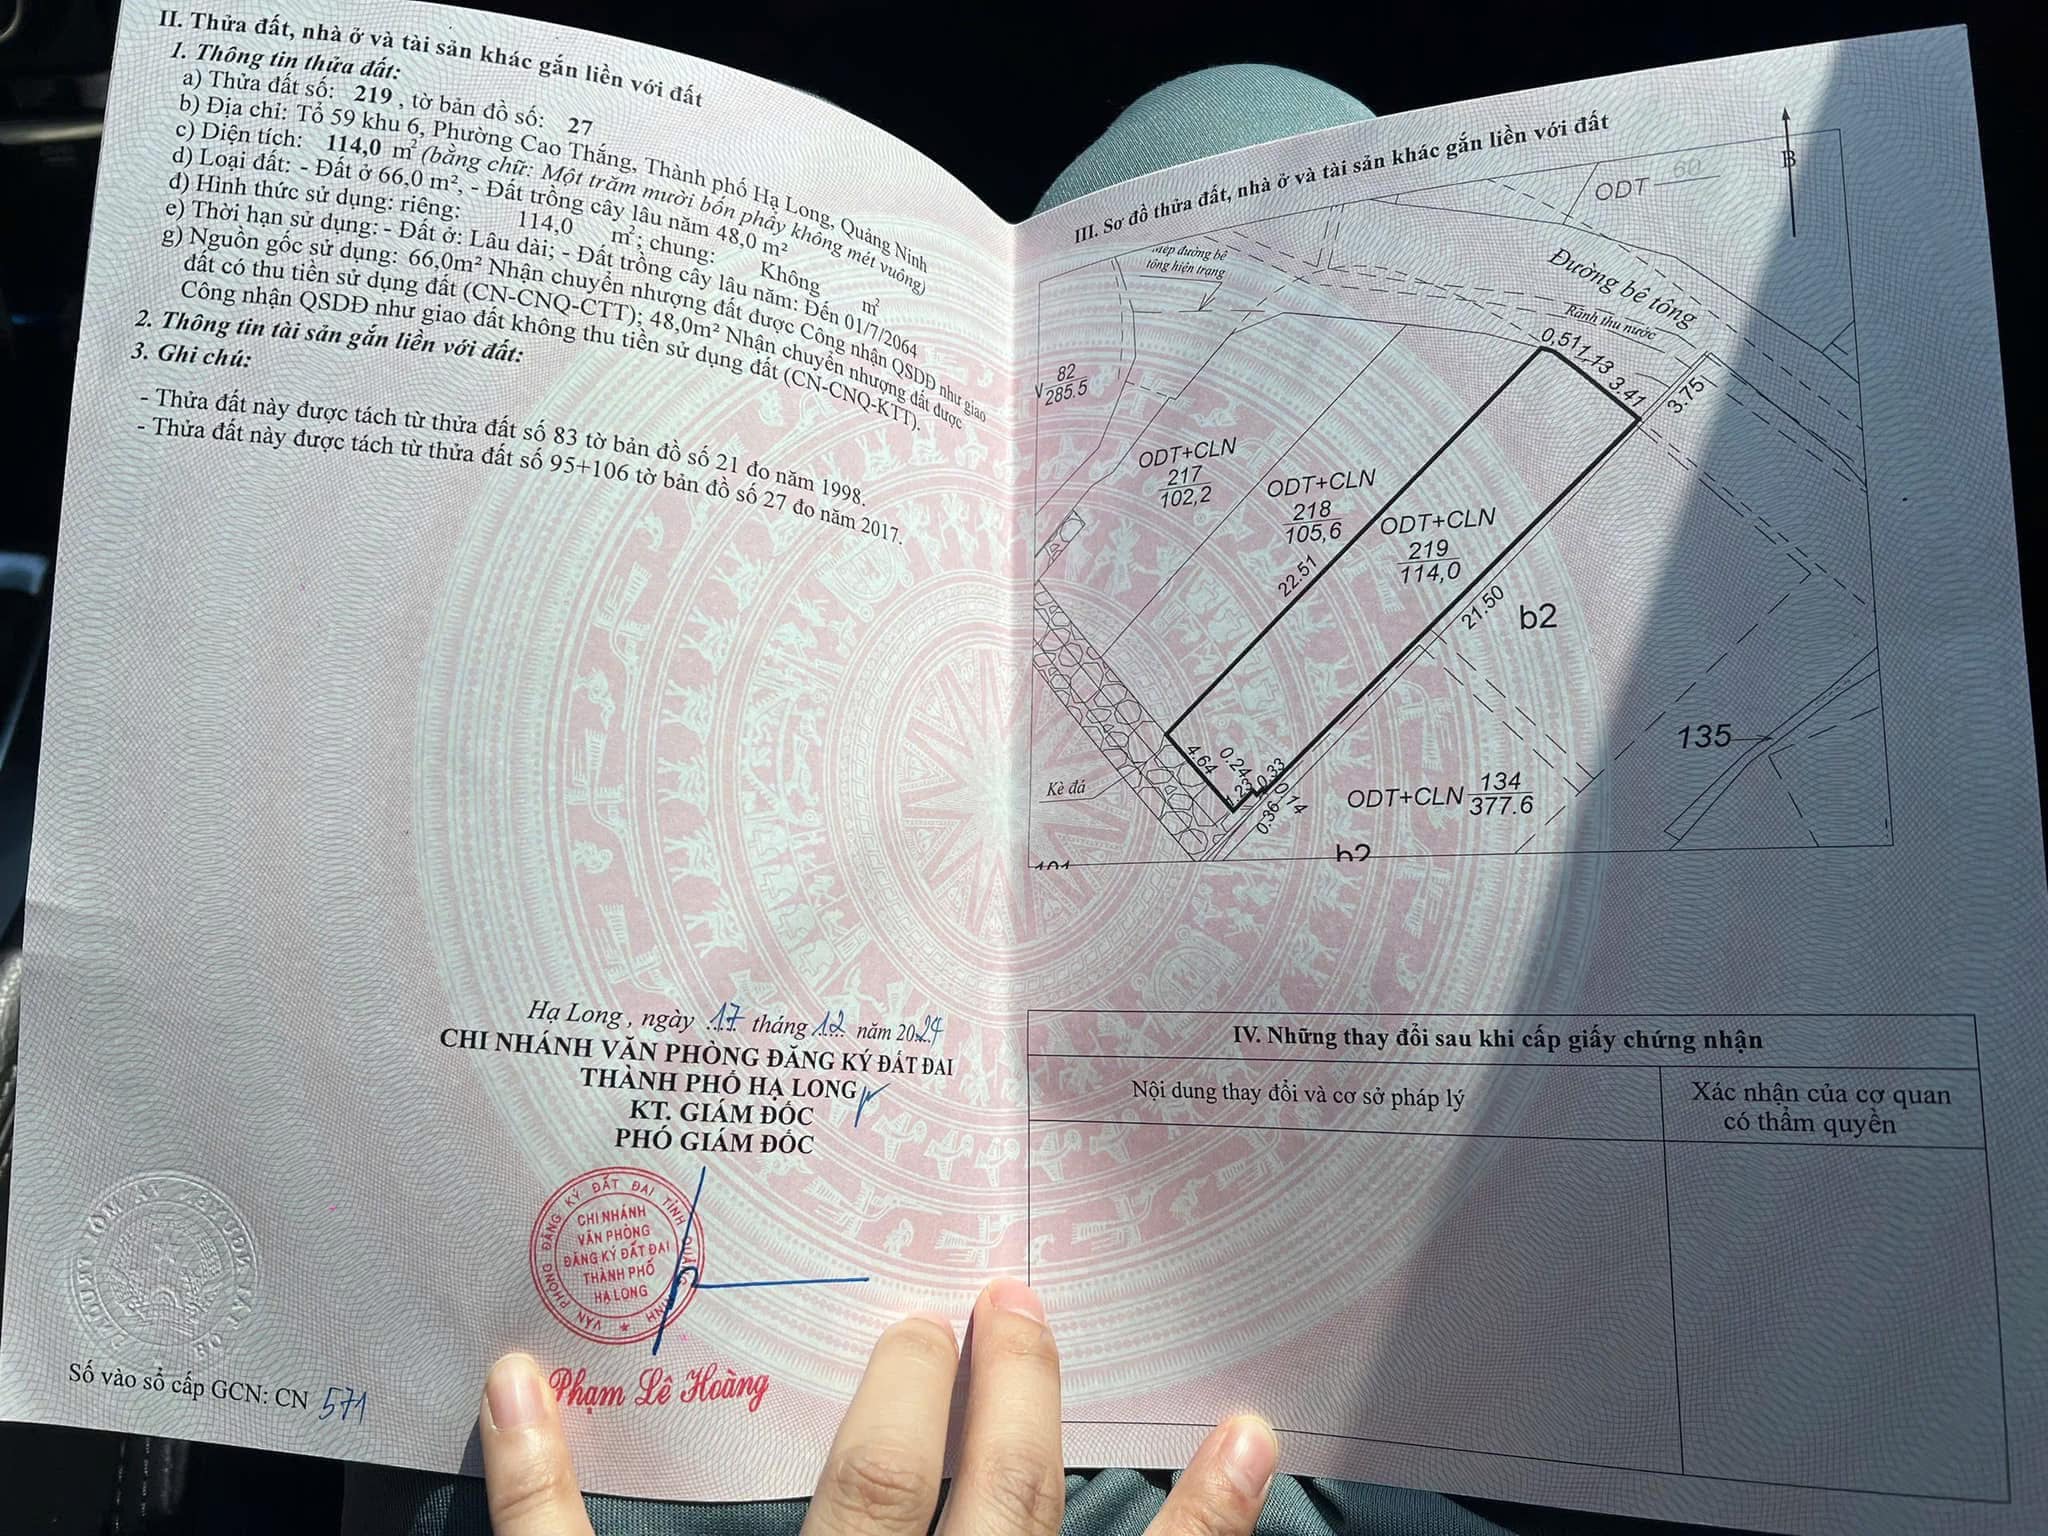 II. Thửa đất, nhà ở và tài sản khác gắn liền với đất
1. Thông tin thửa đất:
a) Thửa đất số: 219 , tờ bản đồ số: 27
b) Địa chỉ: Tổ 59 khu 6, Phường Cao Thắng, Thành phố Hạ Long, Quảng Ninh
c) Diện tích: 114,0 m² (bằng chữ: Một trăm mười bốn phẩy không mét vuông)
d) Loại đất: - Đất ở 66,0 m², - Đất trồng cây lâu năm 48,0 m²
đ) Hình thức sử dụng: riêng: 114,0 m²; chung: Không m²
e) Thời hạn sử dụng: - Đất ở: Lâu dài; - Đất trồng cây lâu năm: Đến 01/7/2064
g) Nguồn gốc sử dụng: 66,0m² Nhận chuyển nhượng đất được Công nhận QSDĐ như giao
đất có thu tiền sử dụng đất (CN-CNQ-CTT); 48,0m² Nhận chuyển nhượng đất được
Công nhận QSDĐ như giao đất không thu tiền sử dụng đất (CN-CNQ-KTT).
2. Thông tin tài sản gắn liền với đất:
3. Ghi chú:
- Thửa đất này được tách từ thửa đất số 83 tờ bản đồ số 21 đo năm 1998.
- Thửa đất này được tách từ thửa đất số 95+106 tờ bản đồ số 27 đo năm 2017.
Hạ Long, ngày 17 tháng 12 năm 2024
CHI NHÁNH VĂN PHÒNG ĐĂNG KÝ ĐẤT ĐAI
THÀNH PHỐ HẠ LONG
KT. GIÁM ĐỐC
PHÓ GIÁM ĐỐC
VĂN PHÒNG ĐĂNG KÝ ĐẤT ĐAI TỈNH QUẢNG NINH
CHI NHÁNH
VĂN PHÒNG
ĐĂNG KÝ ĐẤT ĐAI
THÀNH PHỐ
HẠ LONG
Phạm Lê Hoàng
Số vào sổ cấp GCN: CN 571
III. Sơ đồ thửa đất, nhà ở và tài sản khác gắn liền với đất
B
ODT 60
Mép đường bê
tông hiện trạng
Đường bê tông
Rãnh thu nước
0,51 1,13 3.41
3.75
82
285.5
ODT+CLN
217
102,2
ODT+CLN
218
105,6
ODT+CLN
219
114,0
22.51
21.50
b2
135
4.64
0.24
1.23
0.33
0.14
0.36
Kè đá
ODT+CLN 134
377.6
b2
101
IV. Những thay đổi sau khi cấp giấy chứng nhận
Nội dung thay đổi và cơ sở pháp lý
Xác nhận của cơ quan
có thẩm quyền